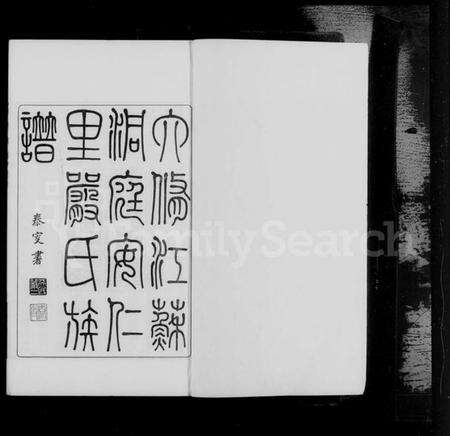 六修江蘇
洞庭安仁
里嚴氏族
譜
秦更書
FamilySearch